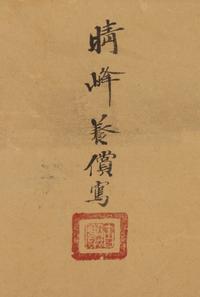 晴峰養價寫